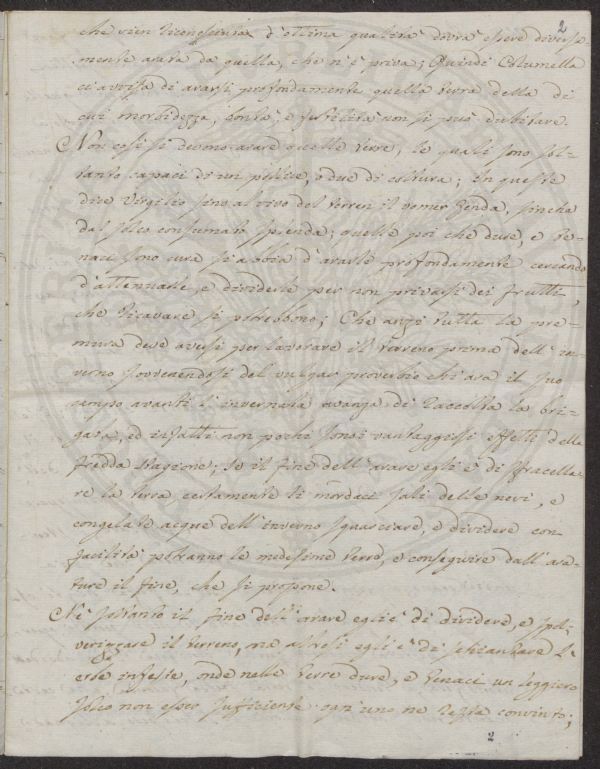 2
che vien riconosciuta d'ottima qualità dovrà essere diversa-
mente arata da quella, che n'è priva; Quindi Columella
ci avvisa di ararsi profondamente quella terra della di
cui morbidezza, bontà, e fertilità non si può dubitare.
Non così si devono arare quelle terre, le quali sono sol-
tanto capaci di un pollice, o due di coltura; in queste
dice Virgilio sino al vivo del terren il vomer fenda, sinchè
dal solco consumato splenda; quelle poi che dure, e te-
naci sono cura si abbia d'ararle profondamente cercando
d'attenuarle, e dividerle per non privarsi dei frutti,
che ricavare si potrebbono; Che anzi tutta la pre-
mura deve aversi per lavorare il terreno prima dell'in-
verno sovvenendosi del vulgar proverbio chi ara il suo
campo avanti l'invernata avanza di raccolta la bri-
gata, ed infatti non pochi sono i vantaggiosi effetti della
fredda stagione; Se il fine dell'arare egli è di sfracella-
re la terra certamente li mordaci sali delle nevi, e
congelate acque dell'inverno squarciare, e dividere con
facilità potranno le medesime terre, e conseguire dall'ara-
ture il fine, che si propone.
Nè soltanto il fine dell'arare egli è di dividere, e spol-
verizzare il terreno, ma altresì egli è di schiantare l'
erbe infeste, onde nelle terre dure, e tenaci un leggiero
solco non esser sufficiente ogn'uno ne resta convinto;
2